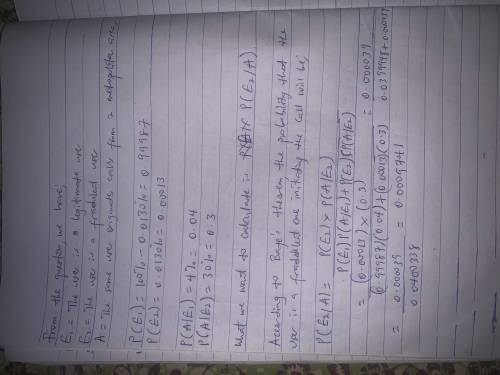 From the question, we have;
E₁ = The user is a legitimate user
E₂ = The user is a fraduled user
A = The same user originates calls from 2 metropolitan area
P(E₁) = 100% - 0.013% = 0.99987
P(E₂) = 0.013% = 0.00013
P(A|E₁) = 4% = 0.04
P(A|E₂) = 30% = 0.3
What we want to calculate is P(E₂/A)
According to Baye's theorem the probability that the
user is a fraduled one initiating the call will be;
P(E₂/A) = P(E₂) × P(A|E₂)
P(E₁)P(A|E₁) + P(E₂)P(A|E₂)
= (0.00013) × (0.3) = 0.000039
(0.99987)(0.04) + (0.00013)(0.3) 0.0399948 + 0.000039
= 0.00039 = 0.0009741
0.0400338